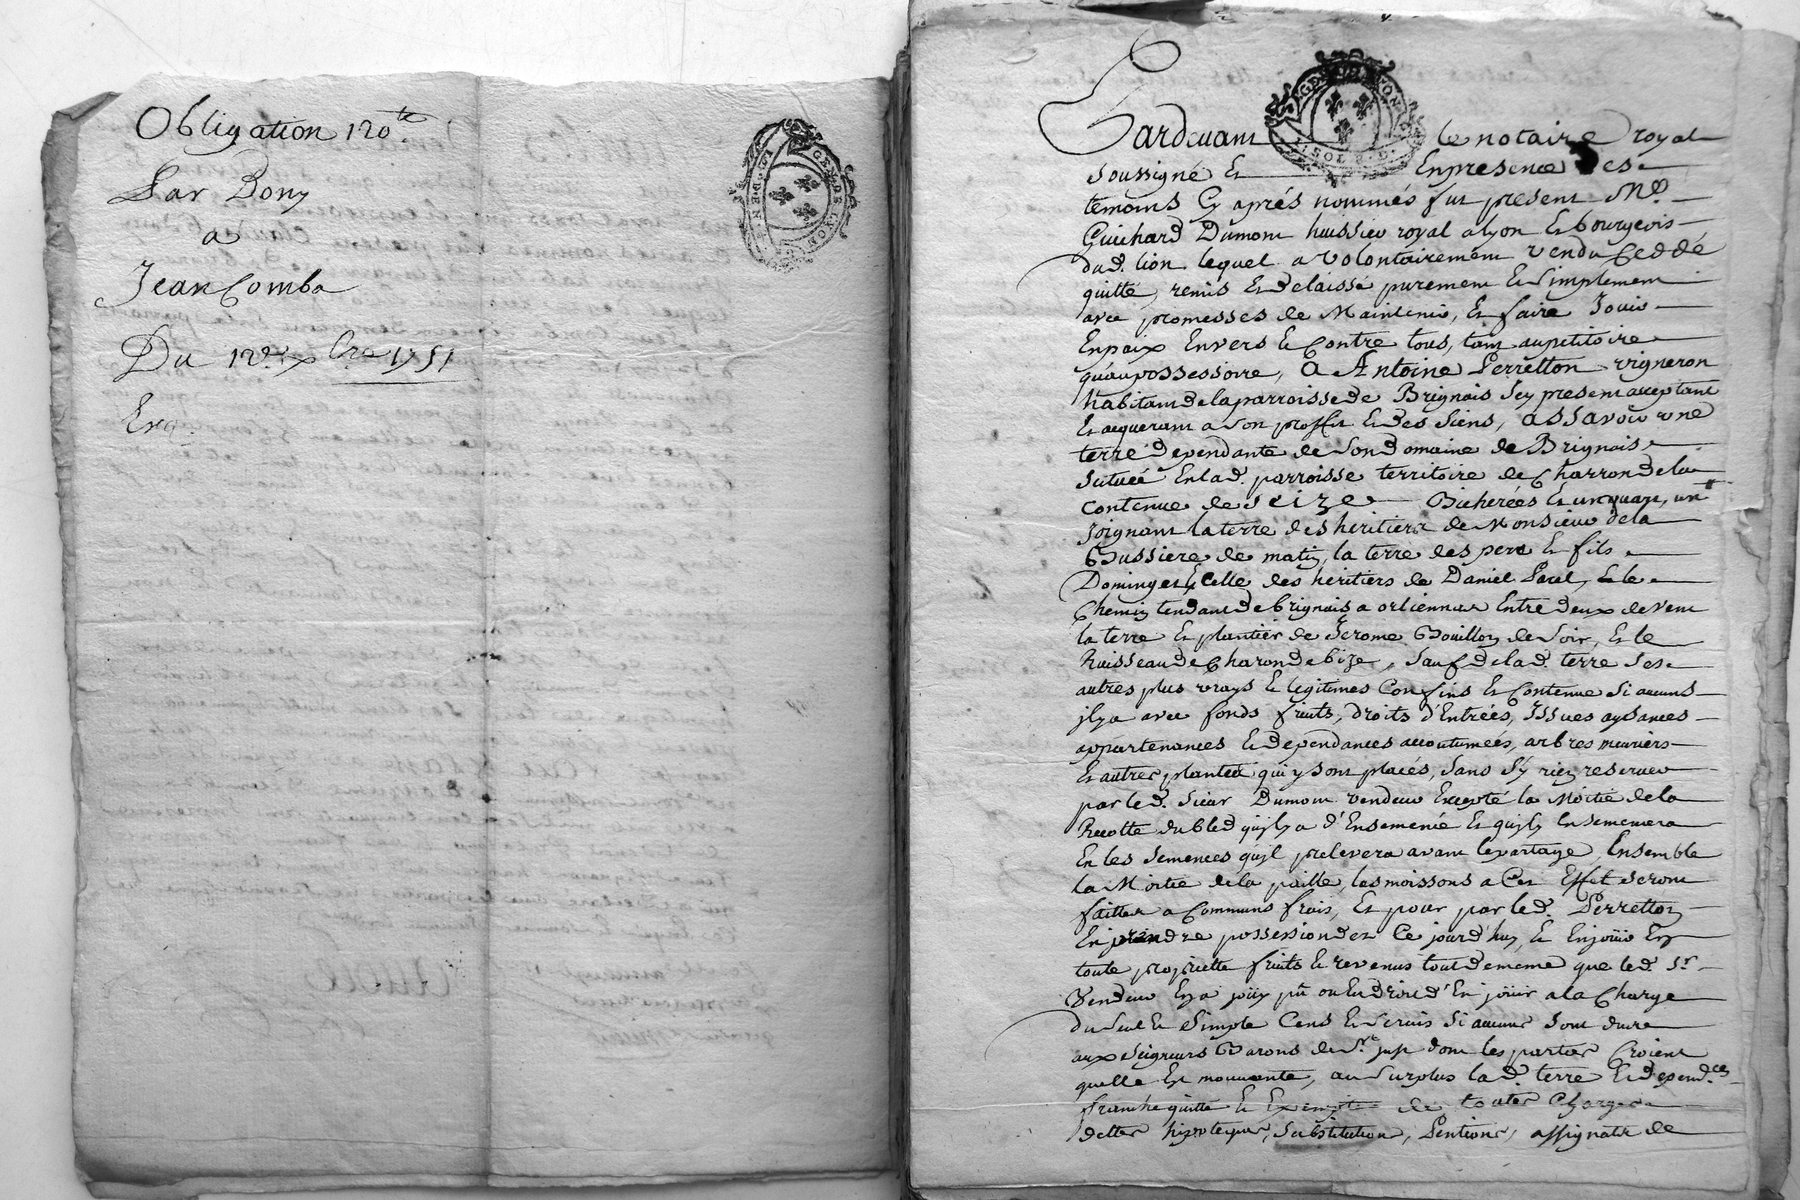 Obligation 120.te
Par Bony
a
Jean Comba
Du 12e. xbre 1751
GEN. DE LYON
GEN. DE LYON
SOL
Pardevant le notaire royal
soussigné Et Enpresence Des
temoins Cy aprés nommés fut present Me.
Guichard Dumont huissier royal a lyon Et bourgeois
dud. lion lequel a volontairement vendu Ceddé
quitté, remis Et delaissé purement Et simplement
avec promesses de Maintenir, Et faire Jouir
Enpaix Envers Et Contre tous, tant aupetitoire
qu'aupossessoire, a Antoine Perretton vigneron
habitant delaparroisse de Brignais Jcy present acceptant
Et acquerant a Son proffit Et des Siens, assavoir une
terre dependante de Son domaine de Brignais
Scituée En lad. parroisse territoire de Charron dela
contenue de seize Bicherées Et unquart, un
Joignant la terre des heritiers de Monsieur dela
Bussiere de matin, la terre des pere Et fils
Dominget, Celle des heritiers de Daniel Parel, Et le
Chemin tendant de brignais a orliennas Entre deux de vent
la terre Et plantier de Jerome Bouillon de Soir, Et le
Ruisseau de Charon de bize, Sauf de lad. terre Ses
autres plus vrays Et legitimes Confins Et Contenue Si aucuns
jlya avec fonds fruits, droits d'Entrées, Issues aysances
appartenances Et dependances accoutumées, arbres meuriers
Et autres plantés qui y sont placés, Sans S'y rien reserver
par led. Sieur Dumont vendeur Excepté la Moitié dela
Recolte du bled qujlya d'Ensemencé Et qujly Ensemencera
En les Semences qujl prelevera avant lepartage, Ensemble
la Moitié dela paille, les moissons a Cet Effet Seront
faittes a Communs frais, Et pour par led. Perretton
En prendre possession dez Ce jourd'huy, Et Enjouir En
toute proprietté fruits Et revenus tout demême que led. Sr.
Vendeur En a jouy pû ou Eu droit d'En jouir a la Charge
du Seul Et Simple Cens Et Servis Si aucuns Sont dûs
aux Seigneurs Barons de St. just dont les parties Croient
quelle Est mouvante, au Surplus lad. terre Et depend.ces
franche quitte Et Exempte de toutes Charges
dettes hipoteques, Substitution, Pentions, assignats de